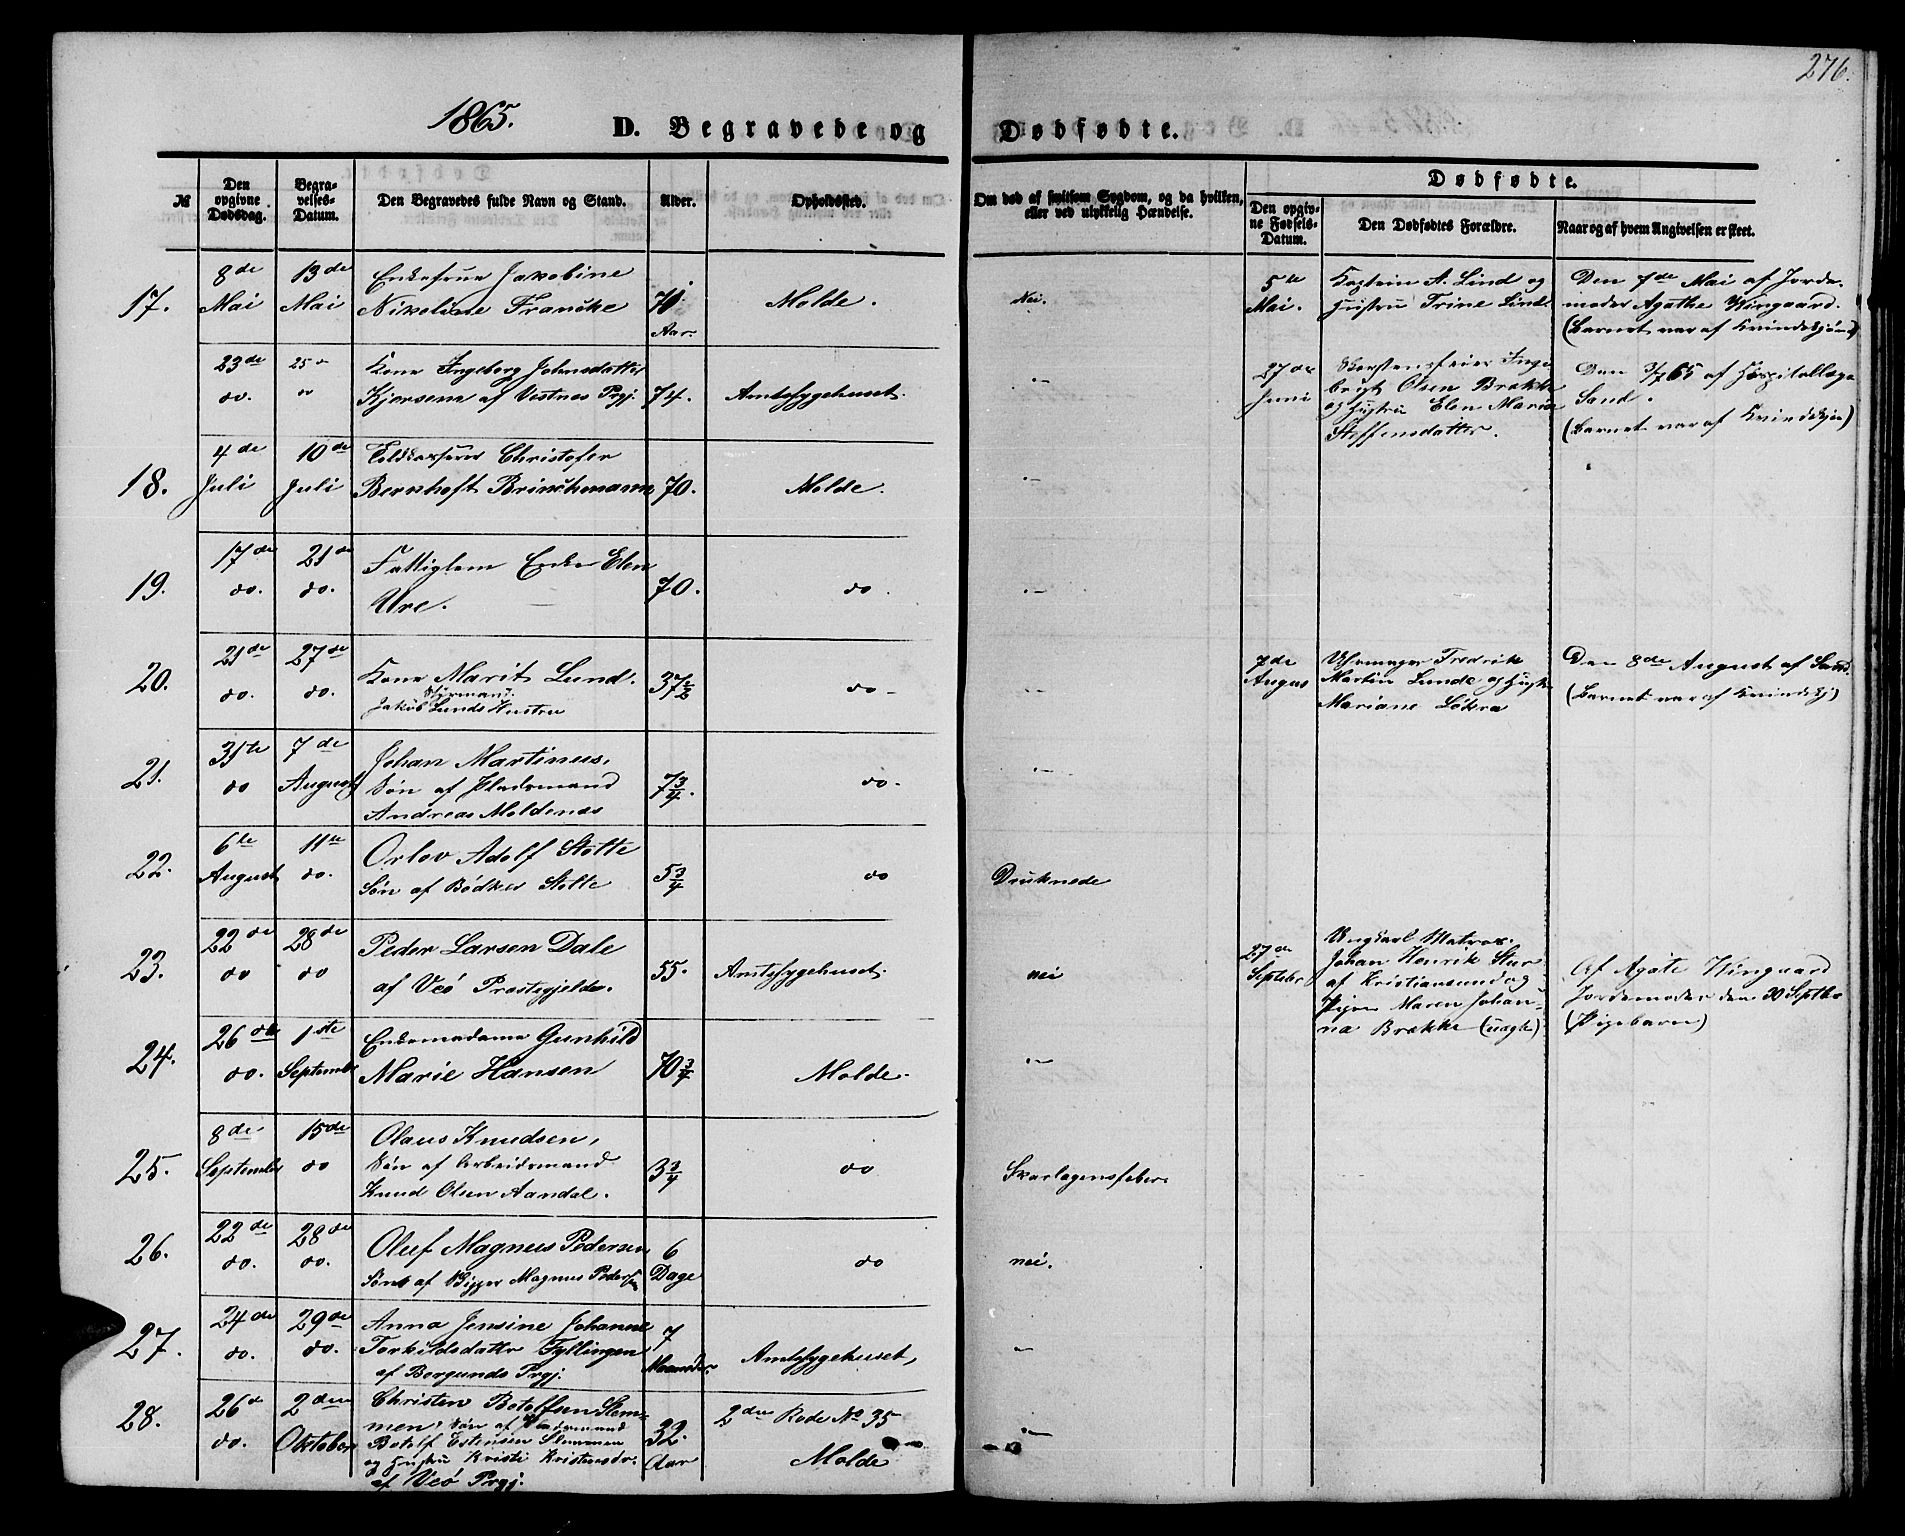 276.
1865.
D. Begravede og Dødfødte.
№
Den opgivne Dødsdag.
Begravelses-Datum.
Den Begravedes fulde Navn og Stand.
Alder.
Opholdssted.
Om død af smitsom Sygdom, og da hvilken, eller ved ulykkelig Hændelse.
Dødfødte.
Den opgivne Fødsels-Datum.
Den Dødfødtes Forældre.
Naar og af hvem Angivelsen er skeet.
17.
8de Mai
13de Mai
Enkefrue Jakobine
Nikoline Francke
70 Aar.
Molde.
Nei.
5te Mai.
Kaptein A. Lind og
Hustru Trine Lind
Den 7de Mai af Jorde-
moder Agathe Wingaard.
(Barnet var af Kvindekjøn)
23de do.
25 do
Kone Ingeborg Johnsdatter
af Vestnes Prgj.
74.
Amtssygehuset.
"
27de Juni
Skorstensfeier Inge-
brigt Olsen Brække
og Hustru Elen Marie
Steffensdatter.
Den 3/7 65 af Hospitallæge
Sand.
(Barnet var af Kvindekjøn)
18.
4de Juli
10de Juli
Christofer
Bernhoft Brinchmann
70.
Molde.
"
19.
17de do.
21de do.
Fattiglem Enke Elen
Vre.
70.
do.
"
20.
21de do.
27de do.
Kone Marit Lund.
Styrmand
Jakob Lunds Hustru
37½
do
"
7de August
Uhrmager Fredrik
Martin Lunde og Hustru
Mariane Løkra
Den 8de August af Sand.
(Barnet var af Kvindekj)
21.
31te do
7de August
Johan Martinus,
Søn af Pladsmand
Andreas Moldenæs
7¾.
do.
"
22.
6te August
11te do.
Orlov Adolf Stolte
Søn af Bødker Stolte
5¾
do
Druknede
23.
22de do
28de do
Peder Larsen Dale
af Veø Præstegjeld.
55.
Amtssygehuset.
nei
27de Septeber
Ungkarl Matros
Johan Henrik Stur
af Kristiansund og
Pigen Maren Johan-
na Brække (uægte)
Af Agate Wingaard
Jordemoder den 30 Septbr
(Pigebarn)
24.
26de do.
1ste September
Enkemadame Gunhild
Marie Hansen
70¾
Molde.
"
25.
8de September
15de do
Olaus Knudsen,
Søn af Arbeidsmand
Knud Olsen Aandal.
3¾
do
Skarlagensfeber
26.
22de do.
28de do.
Oluf Magnus Pedersen
Søn af Bygger Magnus Pedersen
6 Dage
do
nei.
27.
24de do.
29de do.
Anna Jensine Johanne
Torkildsdatter Fyllingen
af Borgunds Prgj.
7 Maaneder
Amtssygehuset,
"
28.
26de do.
2den Oktober
Christen Botolfsen Slem-
men, Søn af Pladsmand
Botolf Estensen Slemmen
og Hustru Kristi Kristensdr.
af Veø Prgj.
32 Aar
2den Rode No 35
Molde
"